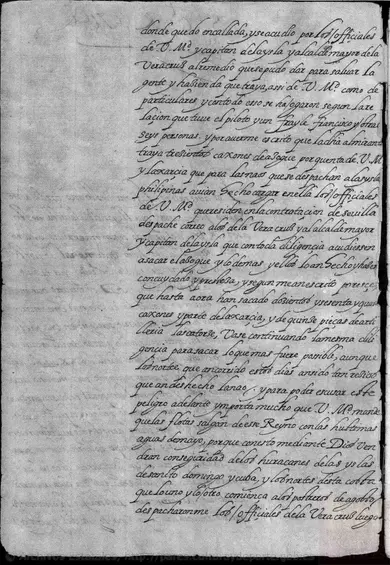 donde quedo encallada, y se acudio por los officiales
de V. Mᵈ y capitan dela ysla y alcalde mayor de la
Veracrus al remedio que se pudo dar para saluar la
gente y hazienda que traya, assi de V. Mᵈ como de
particulares y con todo esso se ahogaron segun la re
lacion que tuue el piloto y un frayle francisco y otras
seys personas. y por auerme escrito que la dha almiranta
traya trezientos caxones de asogue por quenta de V. M
y la xarcia que para las naos que se despachan a las yslas
philipinas auian hecho cargar en ella los officiales
de V. Mᵈ que residen en la contratacion de seuilla
despache correo a los de la Veracrus y al alcalde mayor
y capitan dela ysla que con toda diligencia acudiessen
a sacar el asogue y lo demas y ellos lo an hecho y hazen
con cuydado y presteza, y segun me an escrito parese
que hasta aora han sacado dozientos y sesenta y
caxones y parte de la xarcia, y de quinse pieças de arti
lleria las catorse, Vase continuando la mesma dili
gencia para sacar lo que mas fuere posible, aunque
los nortes que an corrido estos dias an sido tan resios
que an deshecho la nao. y para poder escusar este
peligro adelante ymporta mucho que V. Mᵈ mande
que las flotas salgan de esse Reyno con las ultimas
aguas de mayo, porque con esto mediante Dios Ven
dran con seguridad de los huracanes de las yslas
de sancto domingo y cuba, y los nortes desta costa
que lo uno y lo otro comiença a los postreros de agosto.
despacharonme los officiales dela Veracrus luego